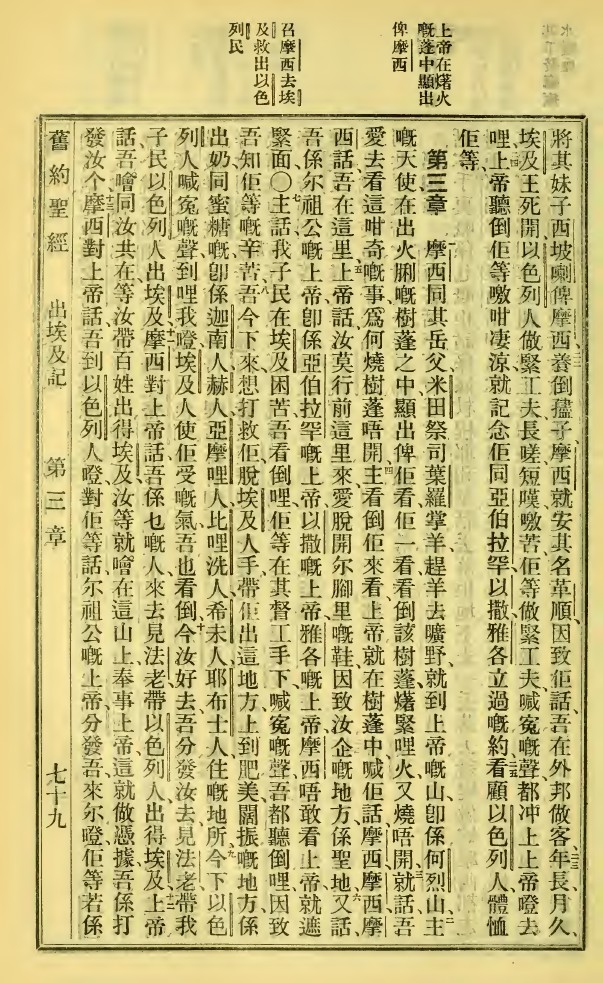 上帝在𤏸火
嘅蓬中顯出
俾摩西
召摩西去埃
及救出以色
列民
將其妹子西坡喇俾摩西養倒孻子摩西就安其名革順因致佢話吾在外邦做客年長月久
埃及王死開以色列人做緊工夫長嗟短嘆噭苦佢等做緊工夫喊寃嘅聲都冲上上帝嶝去
哩上帝聽倒佢等噭咁凄涼就記念佢同亞伯拉罕以撒雅各立過嘅約看顧以色列人體恤
佢等
第三章 摩西同其岳父米田祭司葉羅掌羊趕羊去曠野就到上帝嘅山卽係何烈山主
嘅天使在出火嘅樹蓬之中顯出俾佢看佢一看看倒該樹蓬𤏸緊哩火又燒唔開就話吾
愛去看這咁奇嘅事爲何燒樹蓬唔開主看倒佢來看上帝就在樹蓬中喊佢話摩西摩西摩
西話吾在這里上帝話汝莫行前這里來愛脫開尔腳里嘅鞋因致汝企嘅地方係聖地又話
吾係尔祖公嘅上帝卽係亞伯拉罕嘅上帝以撒嘅上帝雅各嘅上帝摩西唔敢看上帝就遮
緊面〇主話我子民在埃及困苦吾看倒哩佢等在其督工手下喊寃嘅聲吾都聽倒哩因致
吾知佢等嘅辛苦吾今下來想打救佢脫埃及人手帶佢出這地方上到肥美闊振嘅地方係
出奶同蜜糖嘅卽係迦南人赫人亞摩哩人比哩洗人希未人耶布士人住嘅地所今下以色
列人喊寃嘅聲到哩我嶝埃及人使佢受嘅氣吾也看倒今汝好去吾分發汝去見法老帶我
子民以色列人出埃及摩西對上帝話吾係乜嘅人來去見法老帶以色列人出得埃及上帝
話吾噲同汝共在等汝帶百姓出得埃及汝等就噲在這山上奉事上帝這就做憑據吾係打
發汝个摩西對上帝話吾到以色列人嶝對佢等話尔祖公嘅上帝分發吾來尔嶝佢等若係
舊約聖經 出埃及記 第三章 七十九